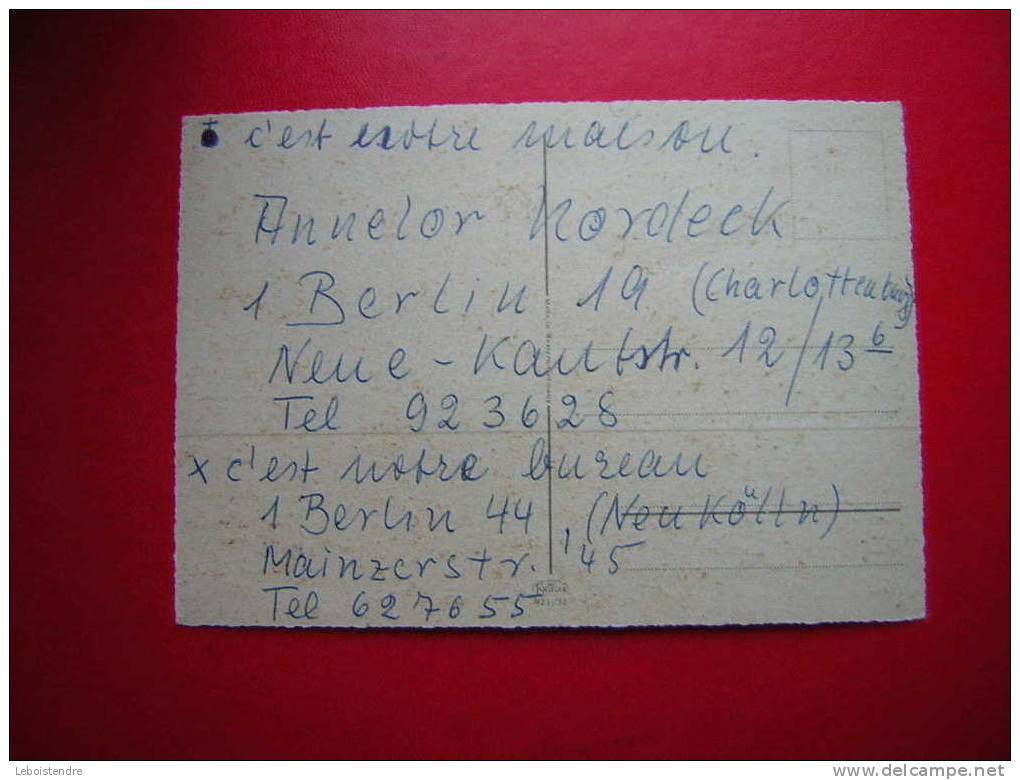 + c'est notre maison.
Annelor Nordeck
1 Berlin 19 (Charlottenburg)
Neue-Kantstr. 12/13 b
Tel 923628
x c'est notre bureau
1 Berlin 44, (Neukölln)
Mainzerstr. 145
Tel 627655
Leboistendre
www.delcampe.net